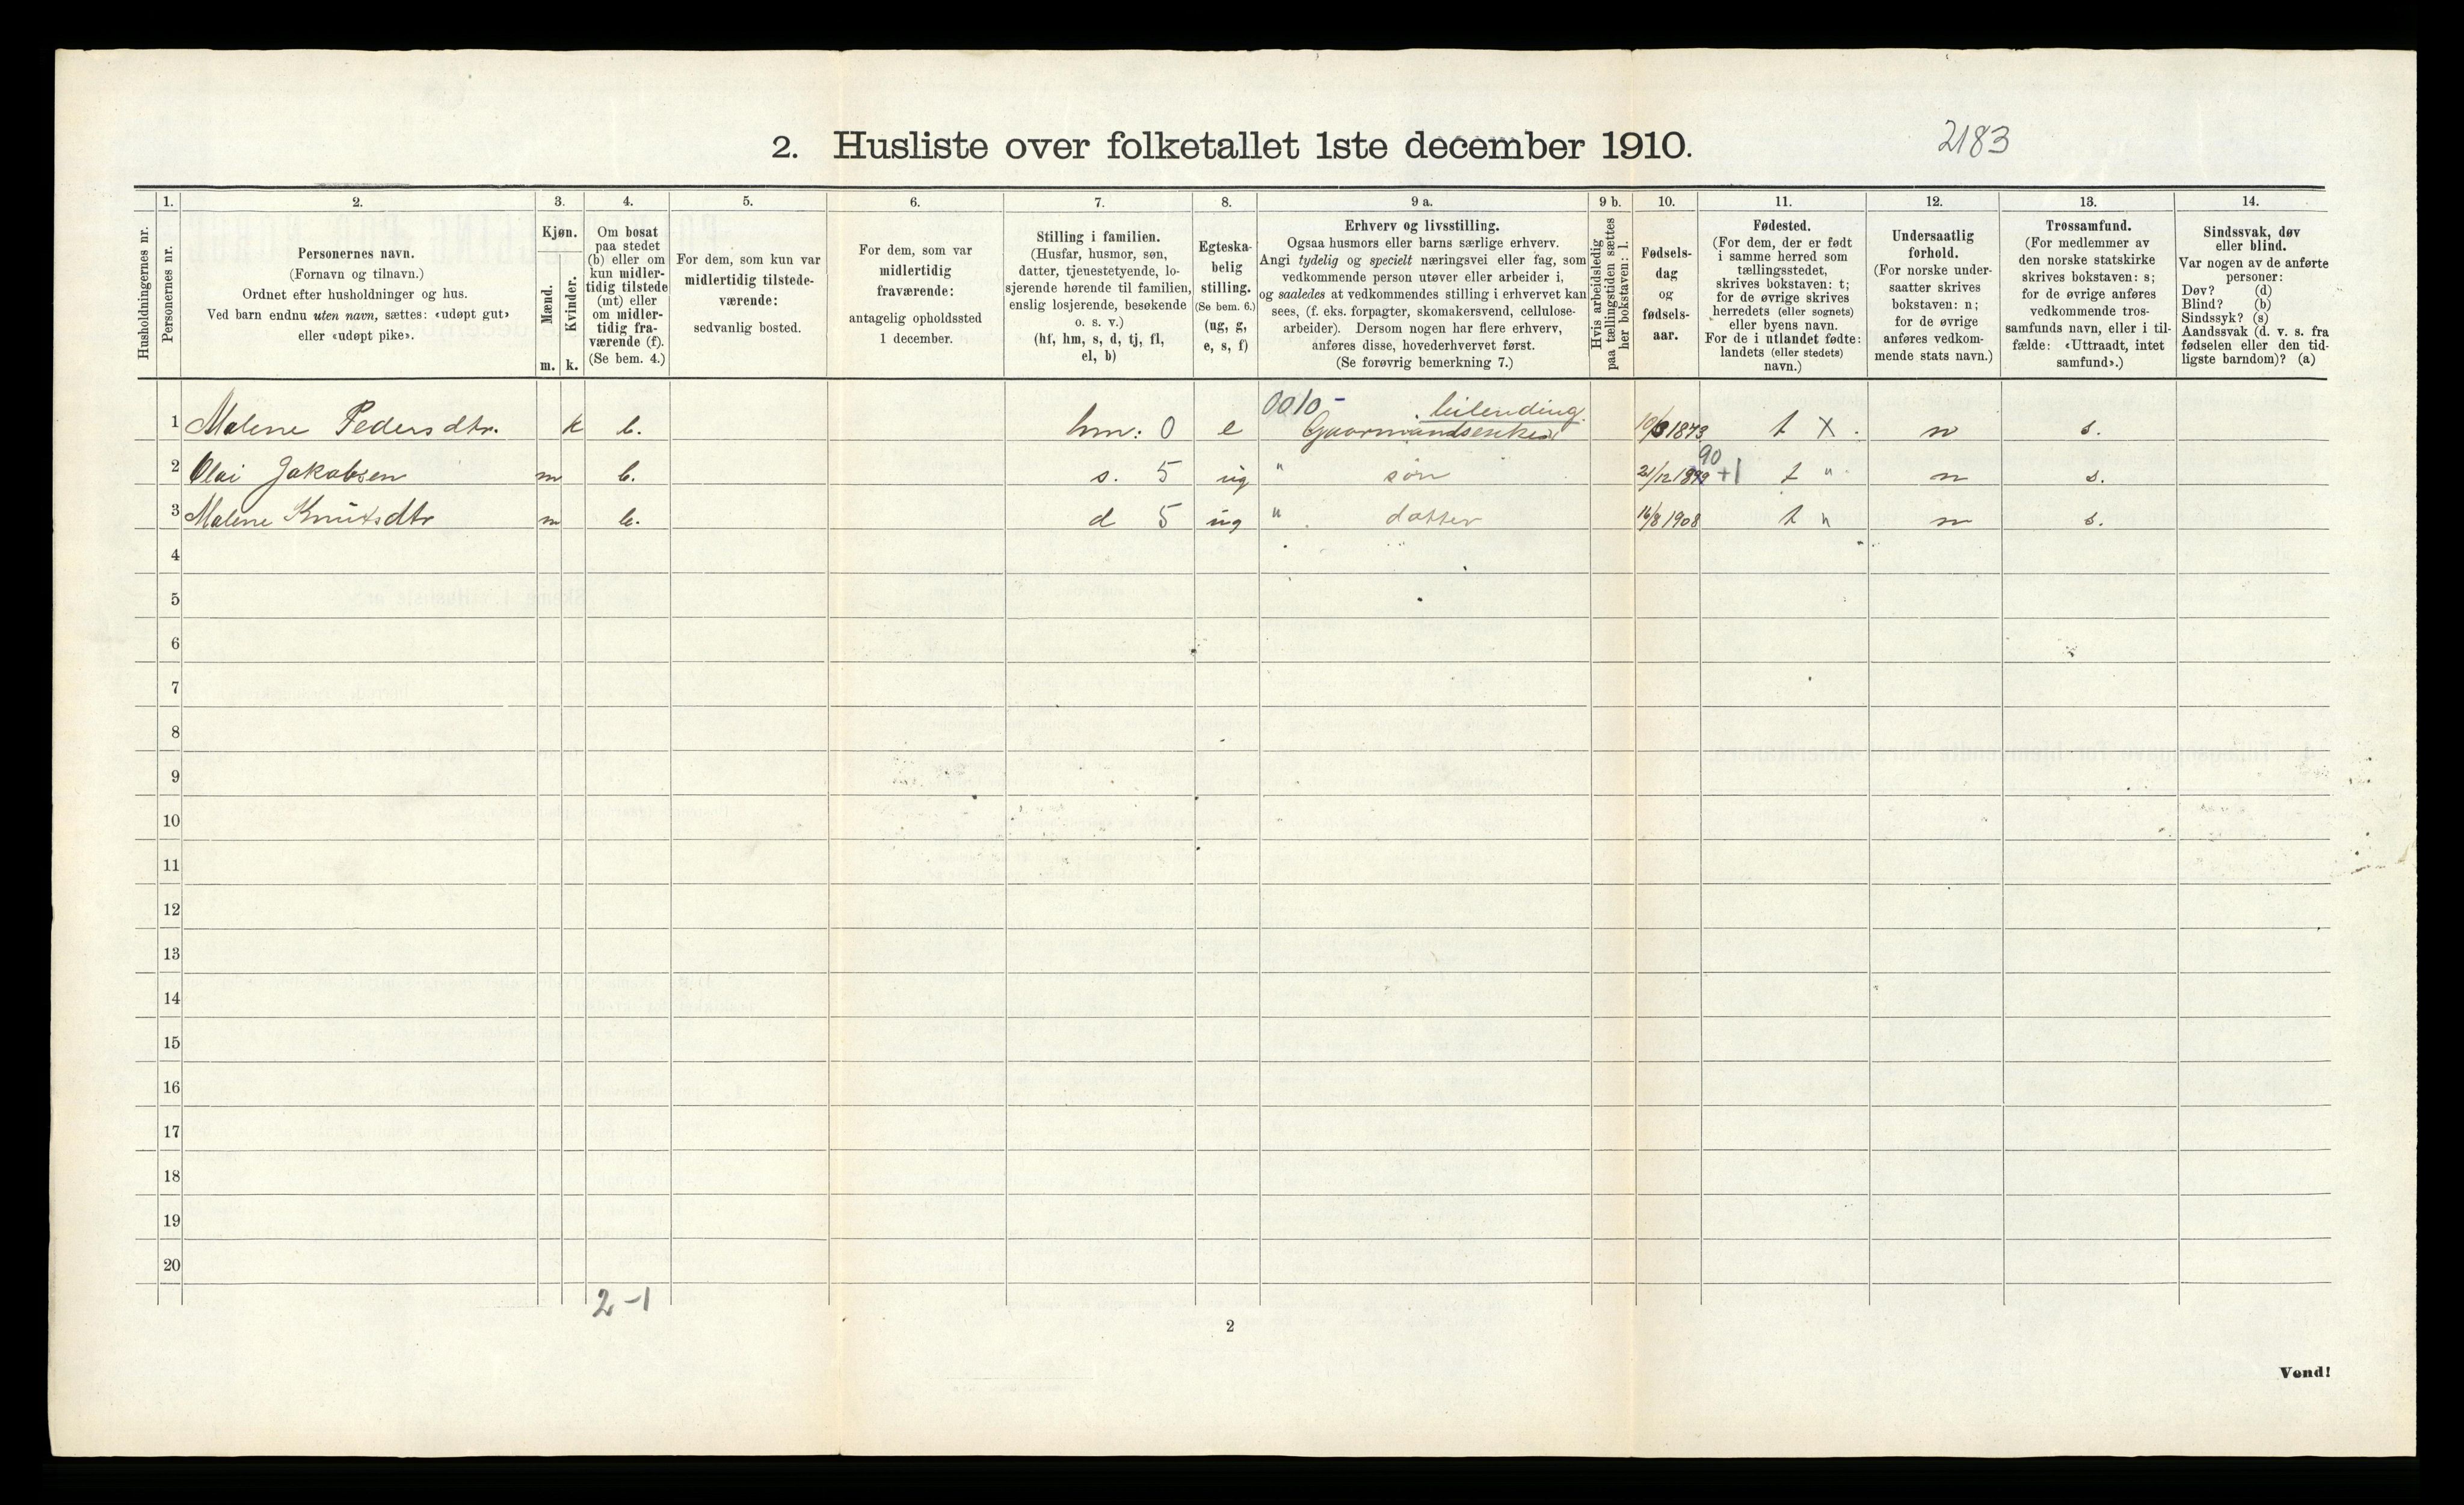 2. Husliste over folketallet 1ste december 1910.
2183
1. 2. 3. 4. 5. 6. 7. 8. 9 a. 9 b. 10. 11. 12. 13. 14.
Husholdningernes nr.
Personernes nr.
Personernes navn.
(Fornavn og tilnavn.)
Ordnet efter husholdninger og hus.
Ved barn endnu uten navn, sættes: «udøpt gut»
eller «udøpt pike».
Kjøn.
Mænd.
Kvinder.
m. k.
Om bosat
paa stedet
(b) eller om
kun midler-
tidig tilstede
(mt) eller
om midler-
tidig fra-
værende (f).
(Se bem. 4.)
For dem, som kun var
midlertidig tilstede-
værende:
sedvanlig bosted.
For dem, som var
midlertidig
fraværende:
antagelig opholdssted
1 december.
Stilling i familien.
(Husfar, husmor, søn,
datter, tjenestetyende, lo-
sjerende hørende til familien,
enslig losjerende, besøkende
o. s. v.)
(hf, hm, s, d, tj, fl,
el, b)
Egteska-
belig
stilling.
(Se bem. 6.)
(ug, g,
e, s, f)
Erhverv og livsstilling.
Ogsaa husmors eller barns særlige erhverv.
Angi tydelig og specielt næringsvei eller fag, som
vedkommende person utøver eller arbeider i,
og saaledes at vedkommendes stilling i erhvervet kan
sees, (f. eks. forpagter, skomakersvend, cellulose-
arbeider). Dersom nogen har flere erhverv,
anføres disse, hovederhvervet først.
(Se forøvrig bemerkning 7.)
Hvis arbeidsledig
paa tællingstiden sættes
her bokstaven: l.
Fødsels-
dag
og
fødsels-
aar.
Fødested.
(For dem, der er født
i samme herred som
tællingsstedet,
skrives bokstaven: t;
for de øvrige skrives
herredets (eller sognets)
eller byens navn.
For de i utlandet fødte:
landets (eller stedets)
navn.)
Undersaatlig
forhold.
(For norske under-
saatter skrives
bokstaven: n;
for de øvrige
anføres vedkom-
mende stats navn.)
Trossamfund.
(For medlemmer av
den norske statskirke
skrives bokstaven: s;
for de øvrige anføres
vedkommende tros-
samfunds navn, eller i til-
fælde: «Uttraadt, intet
samfund».)
Sindssvak, døv
eller blind.
Var nogen av de anførte
personer:
Døv? (d)
Blind? (b)
Sindssyk? (s)
Aandssvak (d. v. s. fra
fødselen eller den tid-
ligste barndom)? (a)
0010 – leilending
1 Malene Pedersdtr. k b. hm: 0 e Gaarmandsenke 10/3 1873 t X n s.
90
2 Olai Jakobsen m b. s. 5 ug " søn 21/12 1899 +1 t " n s.
3 Malene Knutsdtr m b. d 5 ug " datter 16/8 1908 t " n s.
4
5
6
7
8
9
10
11
12
13
14
15
16
17
18
19
20
2-1
2
Vend!